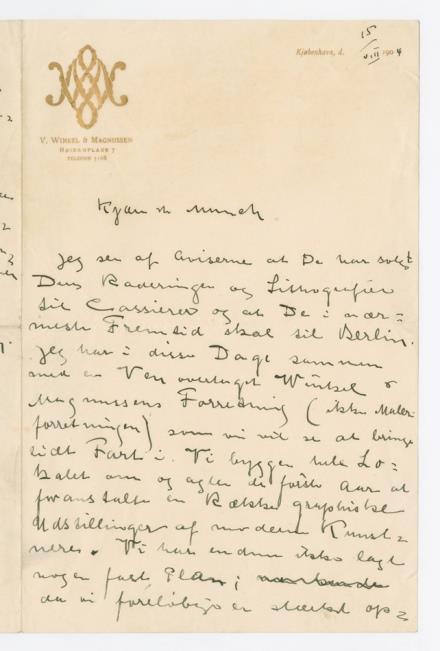 Kjøbenhavn, d. 15/VIII 1904
V. WINKEL & MAGNUSSEN
HØJBROPLADS 7
TELEFON 5168
Kjære Munch
Jeg ser af Aviserne at De har solgt
Deres Raderinger og Lithografier
til Cassierer og at De i nær=
meste Fremtid skal til Berlin.
Jeg har i disse Dage sammen
med en Ven overtaget Winkel &
Magnussens Forretning (ikke Maler
forretningen) som vi vil se at bringe
lidt Fart i. Vi bygger hele Lo=
kalet om og agter de første Aar at
foranstalte en Række graphiske
Udstillinger af moderne Kunst=
nere. Vi har endnu ikke lagt
nogen fast Plan;
da vi foreløbig er stærkt op=